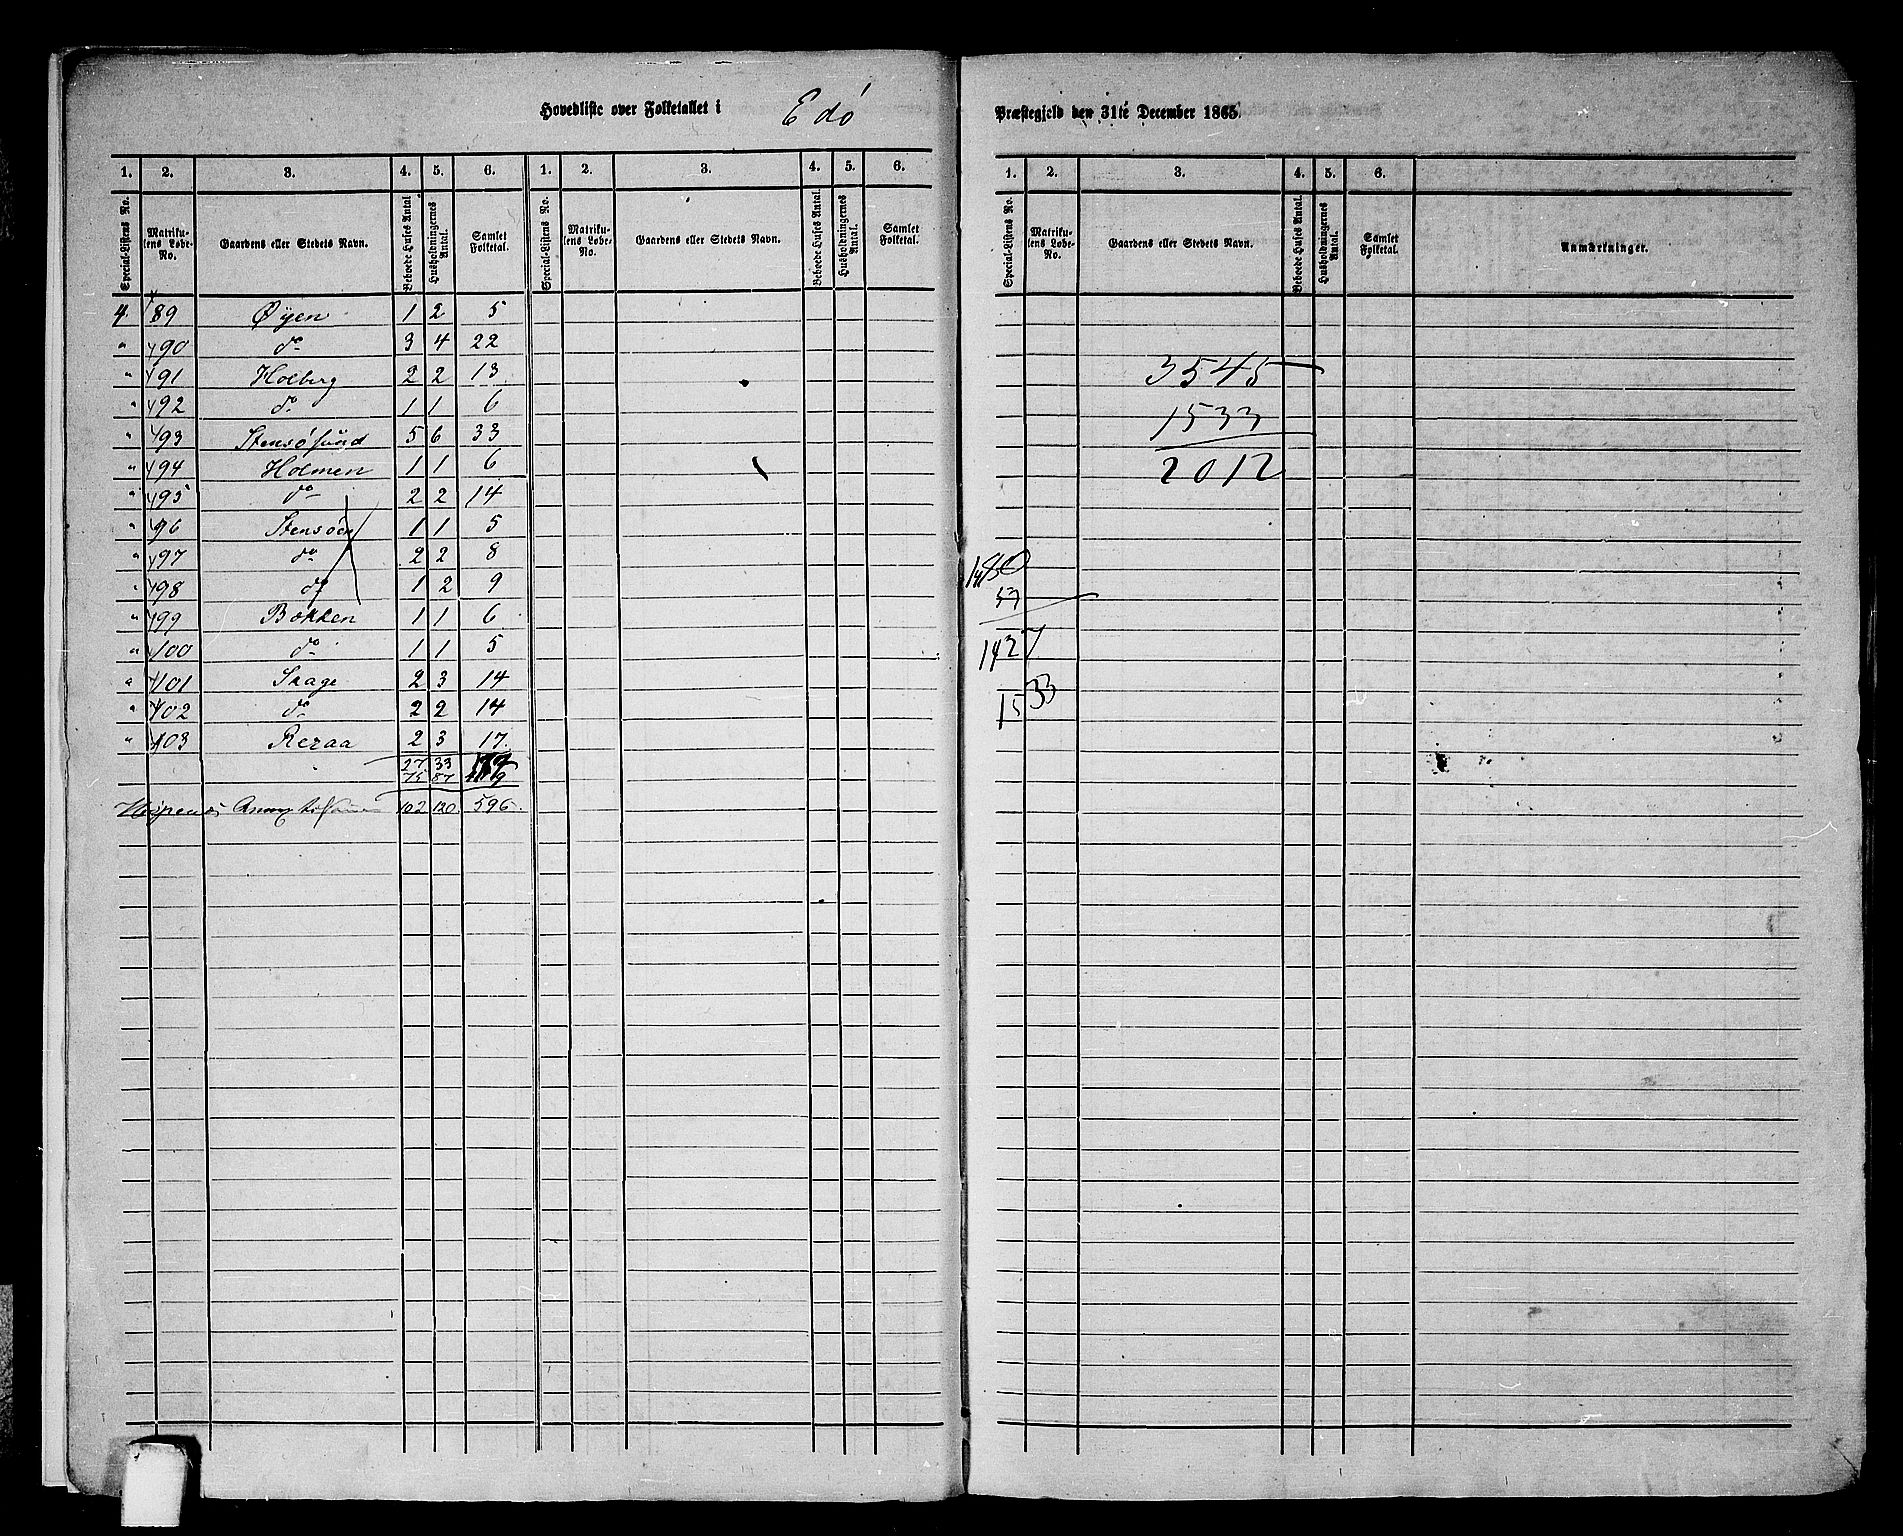 Hovedliste over Folketallet i Edö Præstegjeld den 31te December 1865.
1. 2. 3. 4. 5. 6. 1. 2. 3. 4. 5. 6.
Special-Listens No. Matrikulens Løbe-No. Gaardens eller Stedets Navn. Beboede Huses Antal. Husholdningernes Antal. Samlet Folketal. Special-Listens No. Matrikulens Løbe-No. Gaardens eller Stedets Navn. Beboede Huses Antal. Husholdningernes Antal. Samlet Folketal.
4 89 Øyen 1 2 5
" 90 do 3 4 22
" 91 Holberg 2 2 13
" 92 do 1 1 6
" 93 Stensøsund 5 6 33
" 94 Holmen 1 1 6
" 95 do 2 2 14
" 96 Stensøen 1 1 5
" 97 do 2 2 8
" 98 do 1 2 9
" 99 Bokken 1 1 6
" 100 do 1 1 5
" 101 Skage 2 3 14
" 102 do 2 2 14
" 103 Rezaa 2 3 17
27 33
75 87
102 120 596
1. 2. 3. 4. 5. 6.
Special-Listens No. Matrikulens Løbe-No. Gaardens eller Stedets Navn. Beboede Huses Antal. Husholdningernes Antal. Samlet Folketal. Anmærkninger.
3545
1533
2012
1427
1533